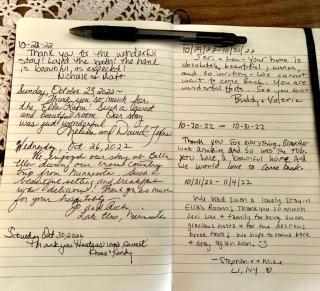 10-22-22
Thank you to the wonderful
stay! Loved the bath! The home
is beautiful, as expected!
Nichole & Matt
Sunday, October 23, 2022~
Thank you so much for
the Ella Room. Such a quiet
and beautiful room. Our stay
was just wonderful!
and David
Wednesday, Oct. 26, 2022
We enjoyed our stay at Belle
during our
trip from Minnesota. Such a
beautiful setting and breakfast
was delicious! Thank you so much
for your hospitality.
Minnesota
Saturday Oct 30, 2022
Thank you Hostess was sweet
10/29/22 - 10/30/22
Jeri & Lou - Your home is
absolutely beautiful, warm,
and so inviting. We cannot
want to come back. You are
wonderful hosts. See you soon.
Buddy & Valeria
10-30-22 - 10-31-22
Thank you for everything. Breakfast
was amazing and so was the
you have a beautiful home and
we would love to come back.
10/31/22 - 11/4/22
We had such a lovely stay in
Ella's Room! Thank you so much
Jeri, Lou & family for being such
gracious hosts & for the delicious
breakfasts! We hope to come back
& stay again soon. ☺
- Stephanie & Mike
LI, NY ♡